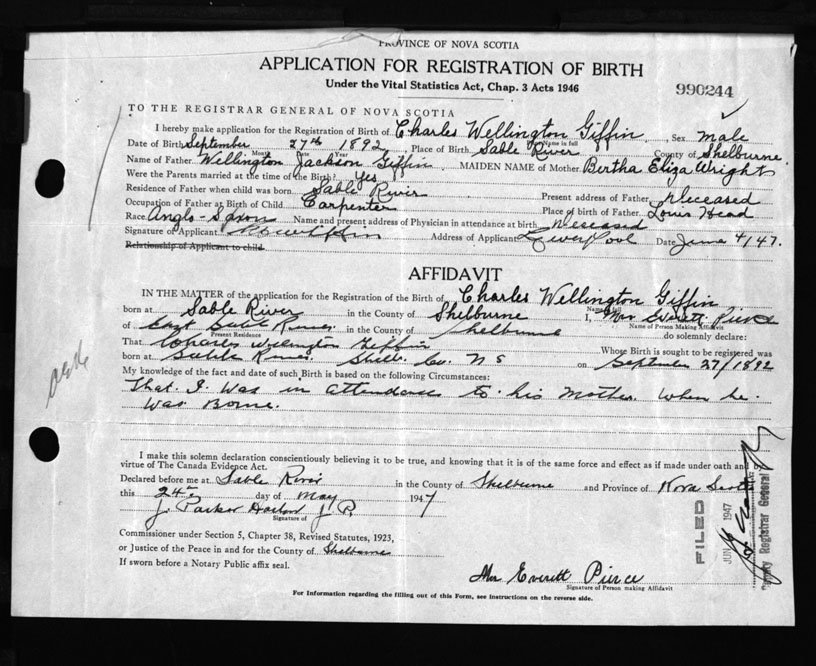 PROVINCE OF NOVA SCOTIA
APPLICATION FOR REGISTRATION OF BIRTH
Under the Vital Statistics Act, Chap. 3 Acts 1946
990244
TO THE REGISTRAR GENERAL OF NOVA SCOTIA
I hereby make application for the Registration of Birth of Charles Wellington Giffin Sex Male
Name in full
Date of Birth September 27th 1892, Place of Birth Sable River County of Shelburne
Month Date Year
Name of Father Wellington Jackson Giffin MAIDEN NAME of Mother Bertha Eliza Wright
Were the Parents married at time of the Birth? Yes
Residence of Father when child was born Sable River Present address of Father Deceased
Occupation of Father at Birth of Child Carpenter Place of birth of Father Louis Head
Race Anglo-Saxon Name and present address of Physician in attendance at birth Deceased
Signature of Applicant Giffin Address of Applicant Liverpool Date June 4/47.
Relationship of Applicant to child
AFFIDAVIT
IN THE MATTER of the application for the Registration of Birth of Charles Wellington Giffin
Name in full
born at Sable River in the County of Shelburne I, Mrs Everett Pierce
Name of Person Making Affidavit
of East Sable River in the County of Shelburne do solemnly declare:
Present Residence
That Charles Wellington Giffin Whose Birth is sought to be registered was
born at Sable River Shelb. Co. N S on September 27/1892
My knowledge of the fact and date of such Birth is based on the following Circumstances:
That. I. Was in attendance to his Mother. When he.
Was Borne.
I make this solemn declaration conscientiously believing it to be true, and knowing that it is of the same force and effect as if made under oath and by
virtue of The Canada Evidence Act.
Declared before me at Sable River in the County of Shelburne and Province of Nova Scotia
this 24th day of May 1947
J. Parker J P.
Signature of
Commissioner under Section 5, Chapter 38, Revised Statutes, 1923,
or Justice of the Peace in and for the County of Shelburne
If sworn before a Notary Public affix seal.
Mrs Everett Pierce
Signature of Person making Affidavit
For Information regarding the filling out of this Form, see instructions on the reverse side.
FILED
JUN 1947
Deputy Registrar General